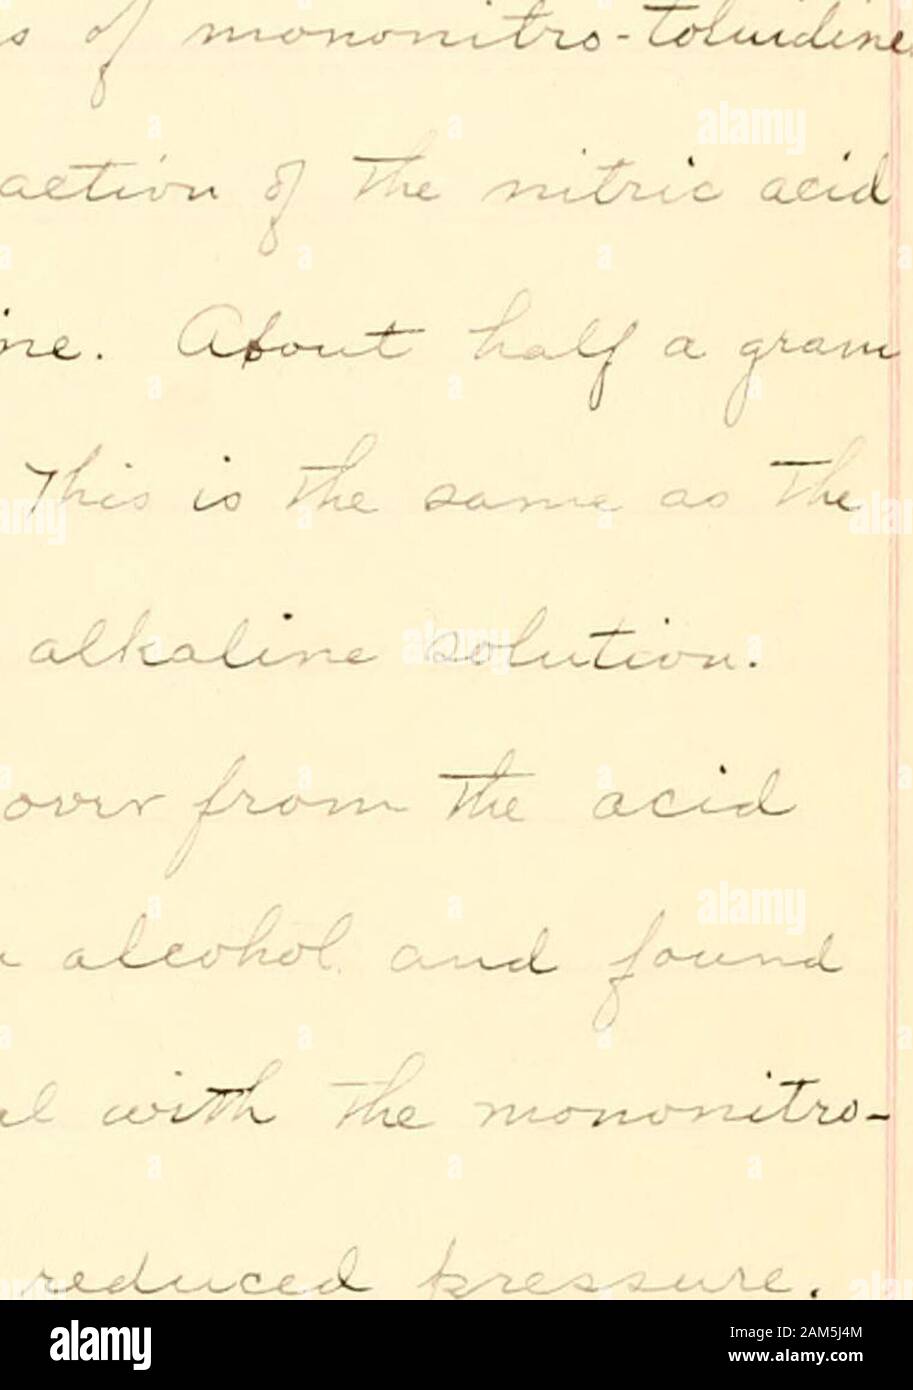 s of mononitro-toluidine
action of the nitric acid
ne. About half a gram
This is the same as the
alkaline solution.
over from the acid
alcohol and found
al with the mononitro-
reduced pressure.
alamy
Image ID: 2AM5J4M
www.alamy.com